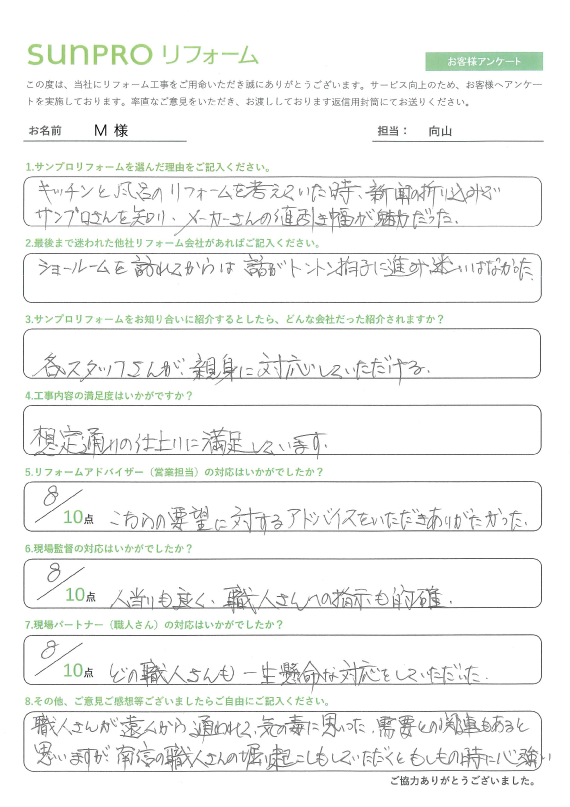 SUNPRO リフォーム
お客様アンケート
この度は、当社にリフォーム工事をご用命いただき誠にありがとうございます。サービス向上のため、お客様へアンケー
トを実施しております。率直なご意見をいただき、お渡ししております返信用封筒にてお送りください。
お名前 M 様 担当： 向山
1.サンプロリフォームを選んだ理由をご記入ください。
キッチンと風呂のリフォームを考えていた時、新聞の折り込みで
サンプロさんを知り、メーカーさんの値引き幅が魅力だった。
2.最後まで迷われた他社リフォーム会社があればご記入ください。
ショールームを訪れてからは話がトントン拍子に進み迷いはなかった。
3.サンプロリフォームをお知り合いに紹介するとしたら、どんな会社だった紹介されますか？
各スタッフさんが、親身に対応していただける。
4.工事内容の満足度はいかがですか？
想定通りの仕上りに満足しています。
5.リフォームアドバイザー（営業担当）の対応はいかがでしたか？
8/10点 こちらの要望に対するアドバイスをいただきありがたかった。
6.現場監督の対応はいかがでしたか？
8/10点 人当りも良く、職人さんへの指示も的確。
7.現場パートナー（職人さん）の対応はいかがでしたか？
8/10点 どの職人さんも一生懸命な対応をしていただいた。
8.その他、ご意見ご感想等ございましたらご自由にご記入ください。
職人さんが遠くから通われて、気の毒に思った。需要との関連もあると
思いますが、南信の職人さんの掘り起こしもしていただくともしもの時に心強い
ご協力ありがとうございました。